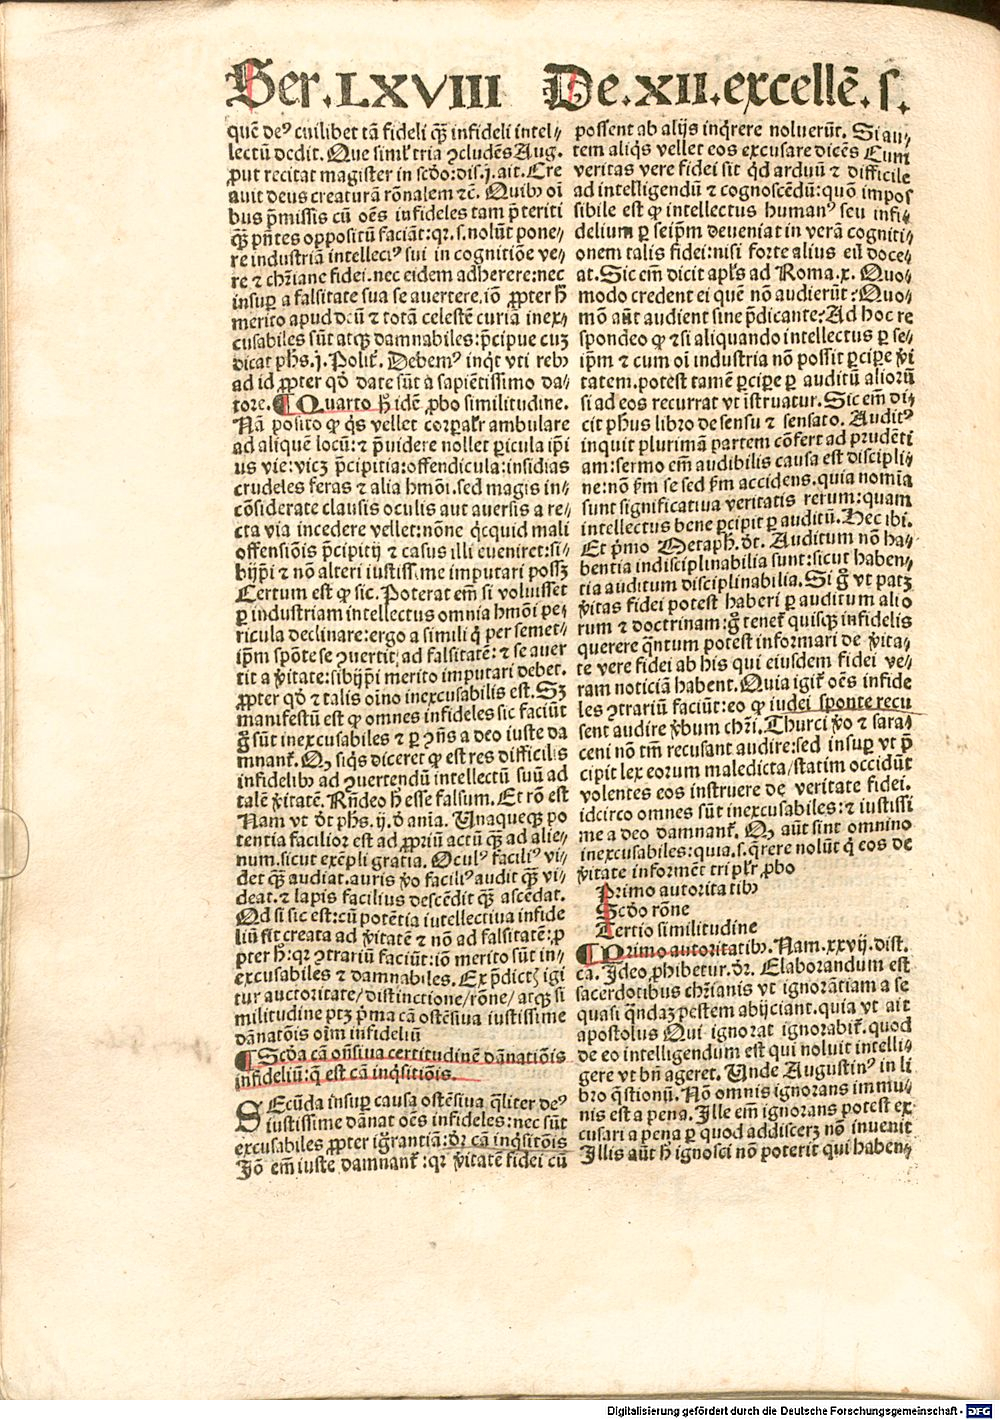 Ser. LXVIII De. XII. excellē. s.
quē deꝰ cuilibet tā fideli qꝫ̄ infideli intel⸗
lectū dedit. Que simł tria ꝯcludēs Aug.
ꝓut recitat magister in scd̄o: dis. j. ait. Cre
auit deus creaturā rōnalem ⁊c̄. Quibꝫ oī
bus p̄missis cū oēs infideles tam p̄teriti
qꝫ̄ pn̄tes oppositū faciāt: qꝛ. s. nolūt pone⸗
re industriā intellectꝰ sui in cognitiōe ve⸗
re ⁊ chr̄iane fidei. nec eidem adherere: nec
insuꝑ a falsitate sua se auertere. iō ꝓpter h̄
merito apud deū ⁊ totā celestē curiā inex⸗
cusabiles sūt atqꝫ damnabiles: p̄cipue cuꝫ
dicat ph̄s. j. Polit̄. Debemꝰ inq̄t vti rebꝫ
ad id ꝓpter qd̄ date sūt a sapiētissimo da⸗
tore. ¶ Quarto h̄ idē ꝓbo similitudine.
Nā posito ꝙ q̇s vellet corꝑalr̄ ambulare
ad aliquē locū: ⁊ p̄uidere nollet ꝑicula ip̄i
us vie: vicꝫ p̄cipitia: offendicula: insidias
crudeles feras ⁊ alia hmōi. sed magis in⸗
cōsiderate clausis oculis aut auersis a re⸗
cta via incedere vellet: nōne q̇cquid mali
offensiōis p̄cipitij ⁊ casus illi eueniret: si⸗
bijp̄i ⁊ nō alteri iustissime imputari possꝫ
Certum est ꝙ sic. Poterat em̄ si voluisset
ꝑ industriam intellectus omnia hmōi pe⸗
ricula declinare: ergo a simili q̇ per semet⸗
ip̄m spōte se ꝯuertit ad falsitatē: ⁊ se auer
tit a v̄itate: sibijp̄i merito imputari debet.
ꝓpter qd̄ ⁊ talis oīno inexcusabilis est. Sꝫ
manifestū est ꝙ omnes infideles sic faciūt
g̊ sūt inexcusabiles ⁊ ꝑ ꝯn̄s a deo iuste da
mnant̄. Qꝫ siq̇s diceret ꝙ est res difficilis
infidelibꝫ ad ꝯuertendū intellectū suū ad
talē v̄itatē. Rn̄deo h̄ esse falsum. Et rō est
Nam vt dr̄t ph̄s. ij. d̄ aīa. Unaqueqꝫ po
tentia facilior est ad ꝓpriū actū qꝫ̄ ad alie⸗
num. sicut exēpli gratia. Oculꝰ faciliꝰ vi⸗
det qꝫ̄ audiat. auris v̄o faciliꝰ audit qꝫ̄ vi⸗
deat. ⁊ lapis facilius descēdit qꝫ̄ ascēdat.
Qd̄ si sic est: cū potētia intellectiua infide
liū sit creata ad v̄itatē ⁊ nō ad falsitatē: ꝓ
pter h̄: qꝛ ꝯtrariū faciūt: iō merito sūt in⸗
excusabiles ⁊ damnabiles. Ex p̄dictꝭ igi
tur auctoritate/ distinctione/ rōne/ atqꝫ si
militudine ptꝫ p̄ma cā ostēsiua iustissime
dānatōis oīm infideliū
¶ Scd̄a cā on̄siua certitudinē dānatiōis
infideliū: q̄ est cā inq̇sitiōis.
SEcūda insuꝑ causa ostēsiua q̄liter deꝰ
iustissime dānat oēs infideles: nec sūt
excusabiles ꝓpter igr̄antiā: dr̄ cā inq̇sitōis
Iō em̄ iuste damnant̄: qꝛ v̄itatē fidei cū
possent ab alijs inq̇rere noluerūt. Si au⸗
tem aliq̇s vellet eos excusare dicēs Cum
veritas vere fidei sit q̇d arduū ⁊ difficile
ad intelligendū ⁊ cognoscēdū: quō impos
sibile est ꝙ intellectus humanꝰ seu infi⸗
delium ꝑ seip̄m deueniat in verā cogniti⸗
onem talis fidei: nisi forte alius eū doce⸗
at. Sic em̄ dicit apl̄s ad Roma. x. Quo⸗
modo credent ei quē nō audierūt? Quo⸗
mō aūt audient sine p̄dicante? Ad hoc re
spondeo ꝙ ⁊si aliquando intellectus ꝑ se⸗
ip̄m ⁊ cum oī industria nō possit ꝑcipe v̄i
tatem. potest tamē ꝑcipe ꝑ auditū aliorū
si ad eos recurrat vt īstruatur. Sic em̄ di⸗
cit ph̄us libro de sensu ⁊ sensato. Auditꝰ
inquit plurimā partem cōfert ad prudēti
am: sermo em̄ audibilis causa est discipli⸗
ne: nō ẜm se sed ẜm accidens. quia nomīa
sunt significatiua veritatis rerum: quam
intellectus bene ꝑcipit ꝑ auditū. Hec ibi.
Et p̄mo Metaph̄. dr̄. Auditum nō ha⸗
bentia indisciplinabilia sunt: sicut haben⸗
tia auditum disciplinabilia. Si g̊ vt patꝫ
v̄itas fidei potest haberi ꝑ auditum alio
rum ⁊ doctrinam: g̊ tenet̄ quisqꝫ infidelis
querere q̄ntum potest informari de v̄ita⸗
te vere fidei ab his qui eiusdem fidei ve⸗
ram noticiā habent. Quia igit̄ oēs infide
les ꝯtrariū faciūt: eo ꝙ iudei sponte recu
sent audire v̄bum chr̄i. Thurci v̄o ⁊ sara⸗
ceni nō tm̄ recusant audire: sed insuꝑ vt p̄
cipit lex eorum maledicta/ statim occidūt
volentes eos instruere de veritate fidei.
idcirco omnes sūt inexcusabiles: ⁊ iustissi
me a deo damnant̄. Qꝫ aūt sint omnino
inexcusabiles: quia. s. q̄rere nolūt q̇ eos de
v̄itate informēt triplr̄ ꝓbo
Primo autoritatibꝫ
Scd̄o rōne
Tertio similitudine
¶ Primo autoritatibꝫ. Nam. xxvij. dist.
ca. Ideo ꝓhibetur. dr̄. Elaborandum est
sacerdotibus chr̄ianis vt ignorātiam a se
quasi q̄ndaꝫ pestem abijciant. quia vt ait
apostolus Qui ignorat ignorabit̄. quod
de eo intelligendum est qui noluit intelli⸗
gere vt bn̄ ageret. Unde Augustinꝰ in li
bro q̄stionū. Nō omnis ignorans immu⸗
nis est a pena. Ille em̄ ignorans potest ex
cusari a pena ꝑ quod addisceꝛꝫ nō inuenit
Illis aūt h̄ ignosci nō poterit qui haben⸗
Digitalisierung gefördert durch die Deutsche Forschungsgemeinschaft - DFG